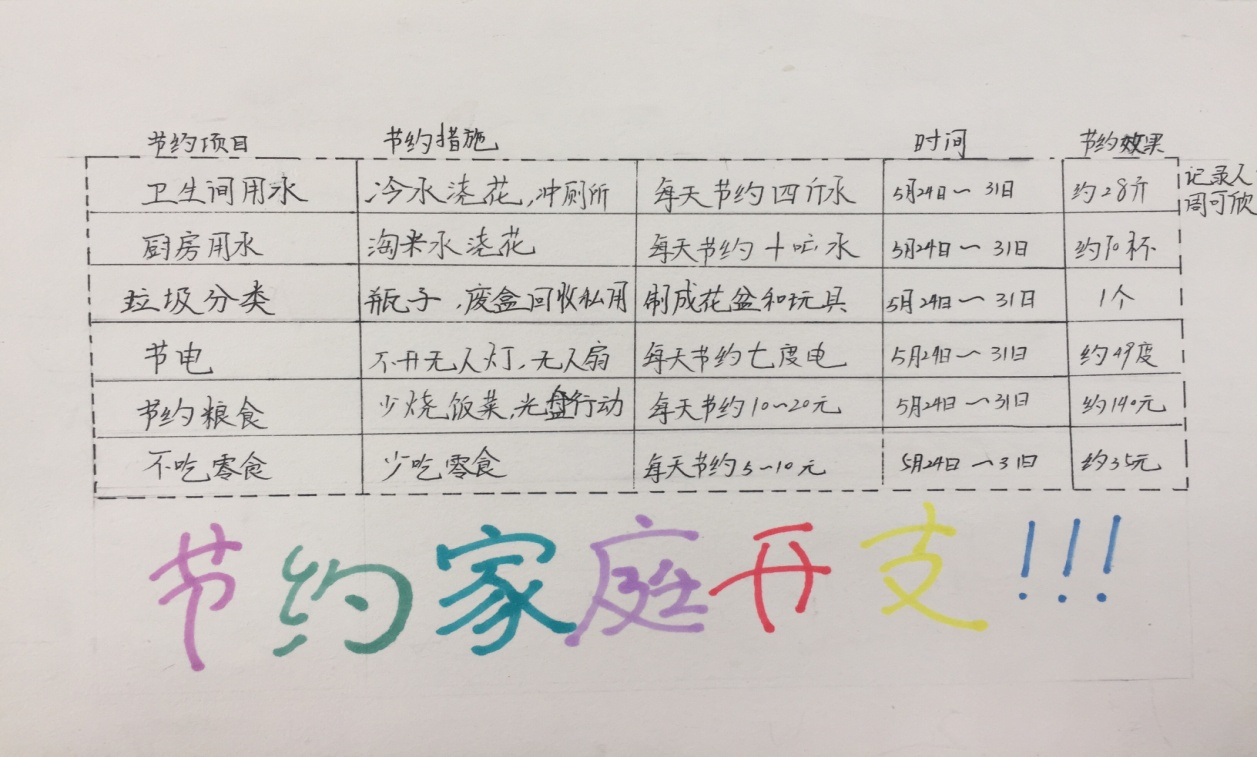 节约项目 节约措施 时间 节约效果
卫生间用水 冷水浇花,冲厕所 每天节约四斤水 5月24日~31日 约28斤
记录人
周可欣
厨房用水 淘米水浇花 每天节约十 水 5月24日~31日 约70杯
垃圾分类 瓶子,废盒回收利用 制成花盆和玩具 5月24日~31日 1个
节电 不开无人灯,无人扇 每天节约七度电 5月24日~31日 约49度
节约粮食 少烧饭菜,光盘行动 每天节约10~20元 5月24日~31日 约140元
不吃零食 少吃零食 每天节约5~10元 5月24日~31日 约35元
节约家庭开支!!!